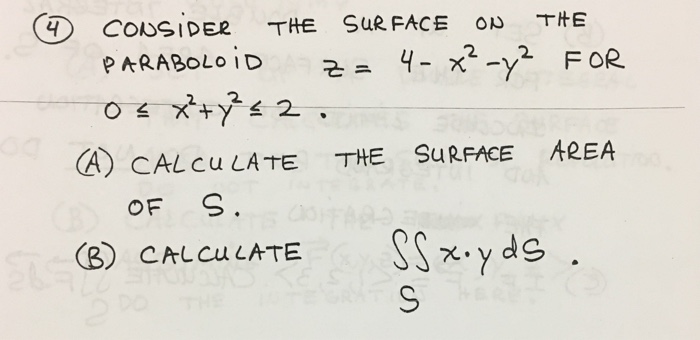 4 CONSIDER THE SURFACE ON THE
PARABOLOID z = 4 - x² - y² FOR
0 ≤ x² + y² ≤ 2 .
(A) CALCULATE THE SURFACE AREA
OF S.
(B) CALCULATE ∬ x·y dS .
S